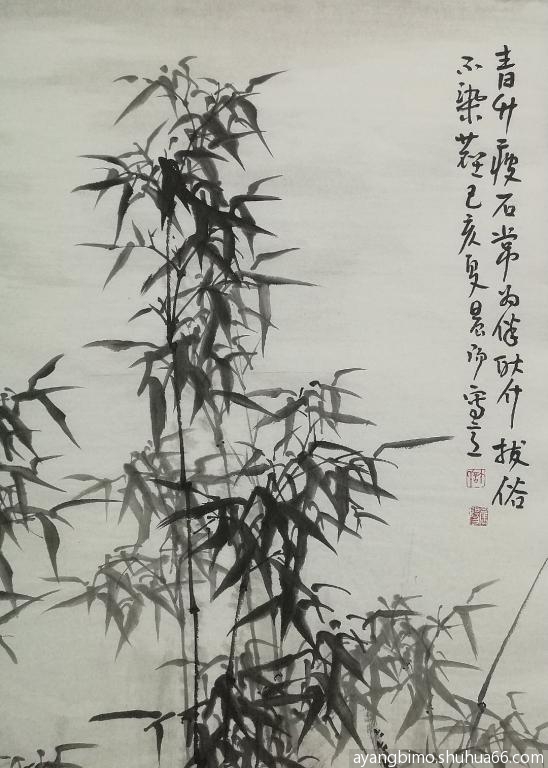 青竹瘦石常为伴耿介拔俗
不染尘己亥夏晨阳写意
ayangbimo.shuhua66.com